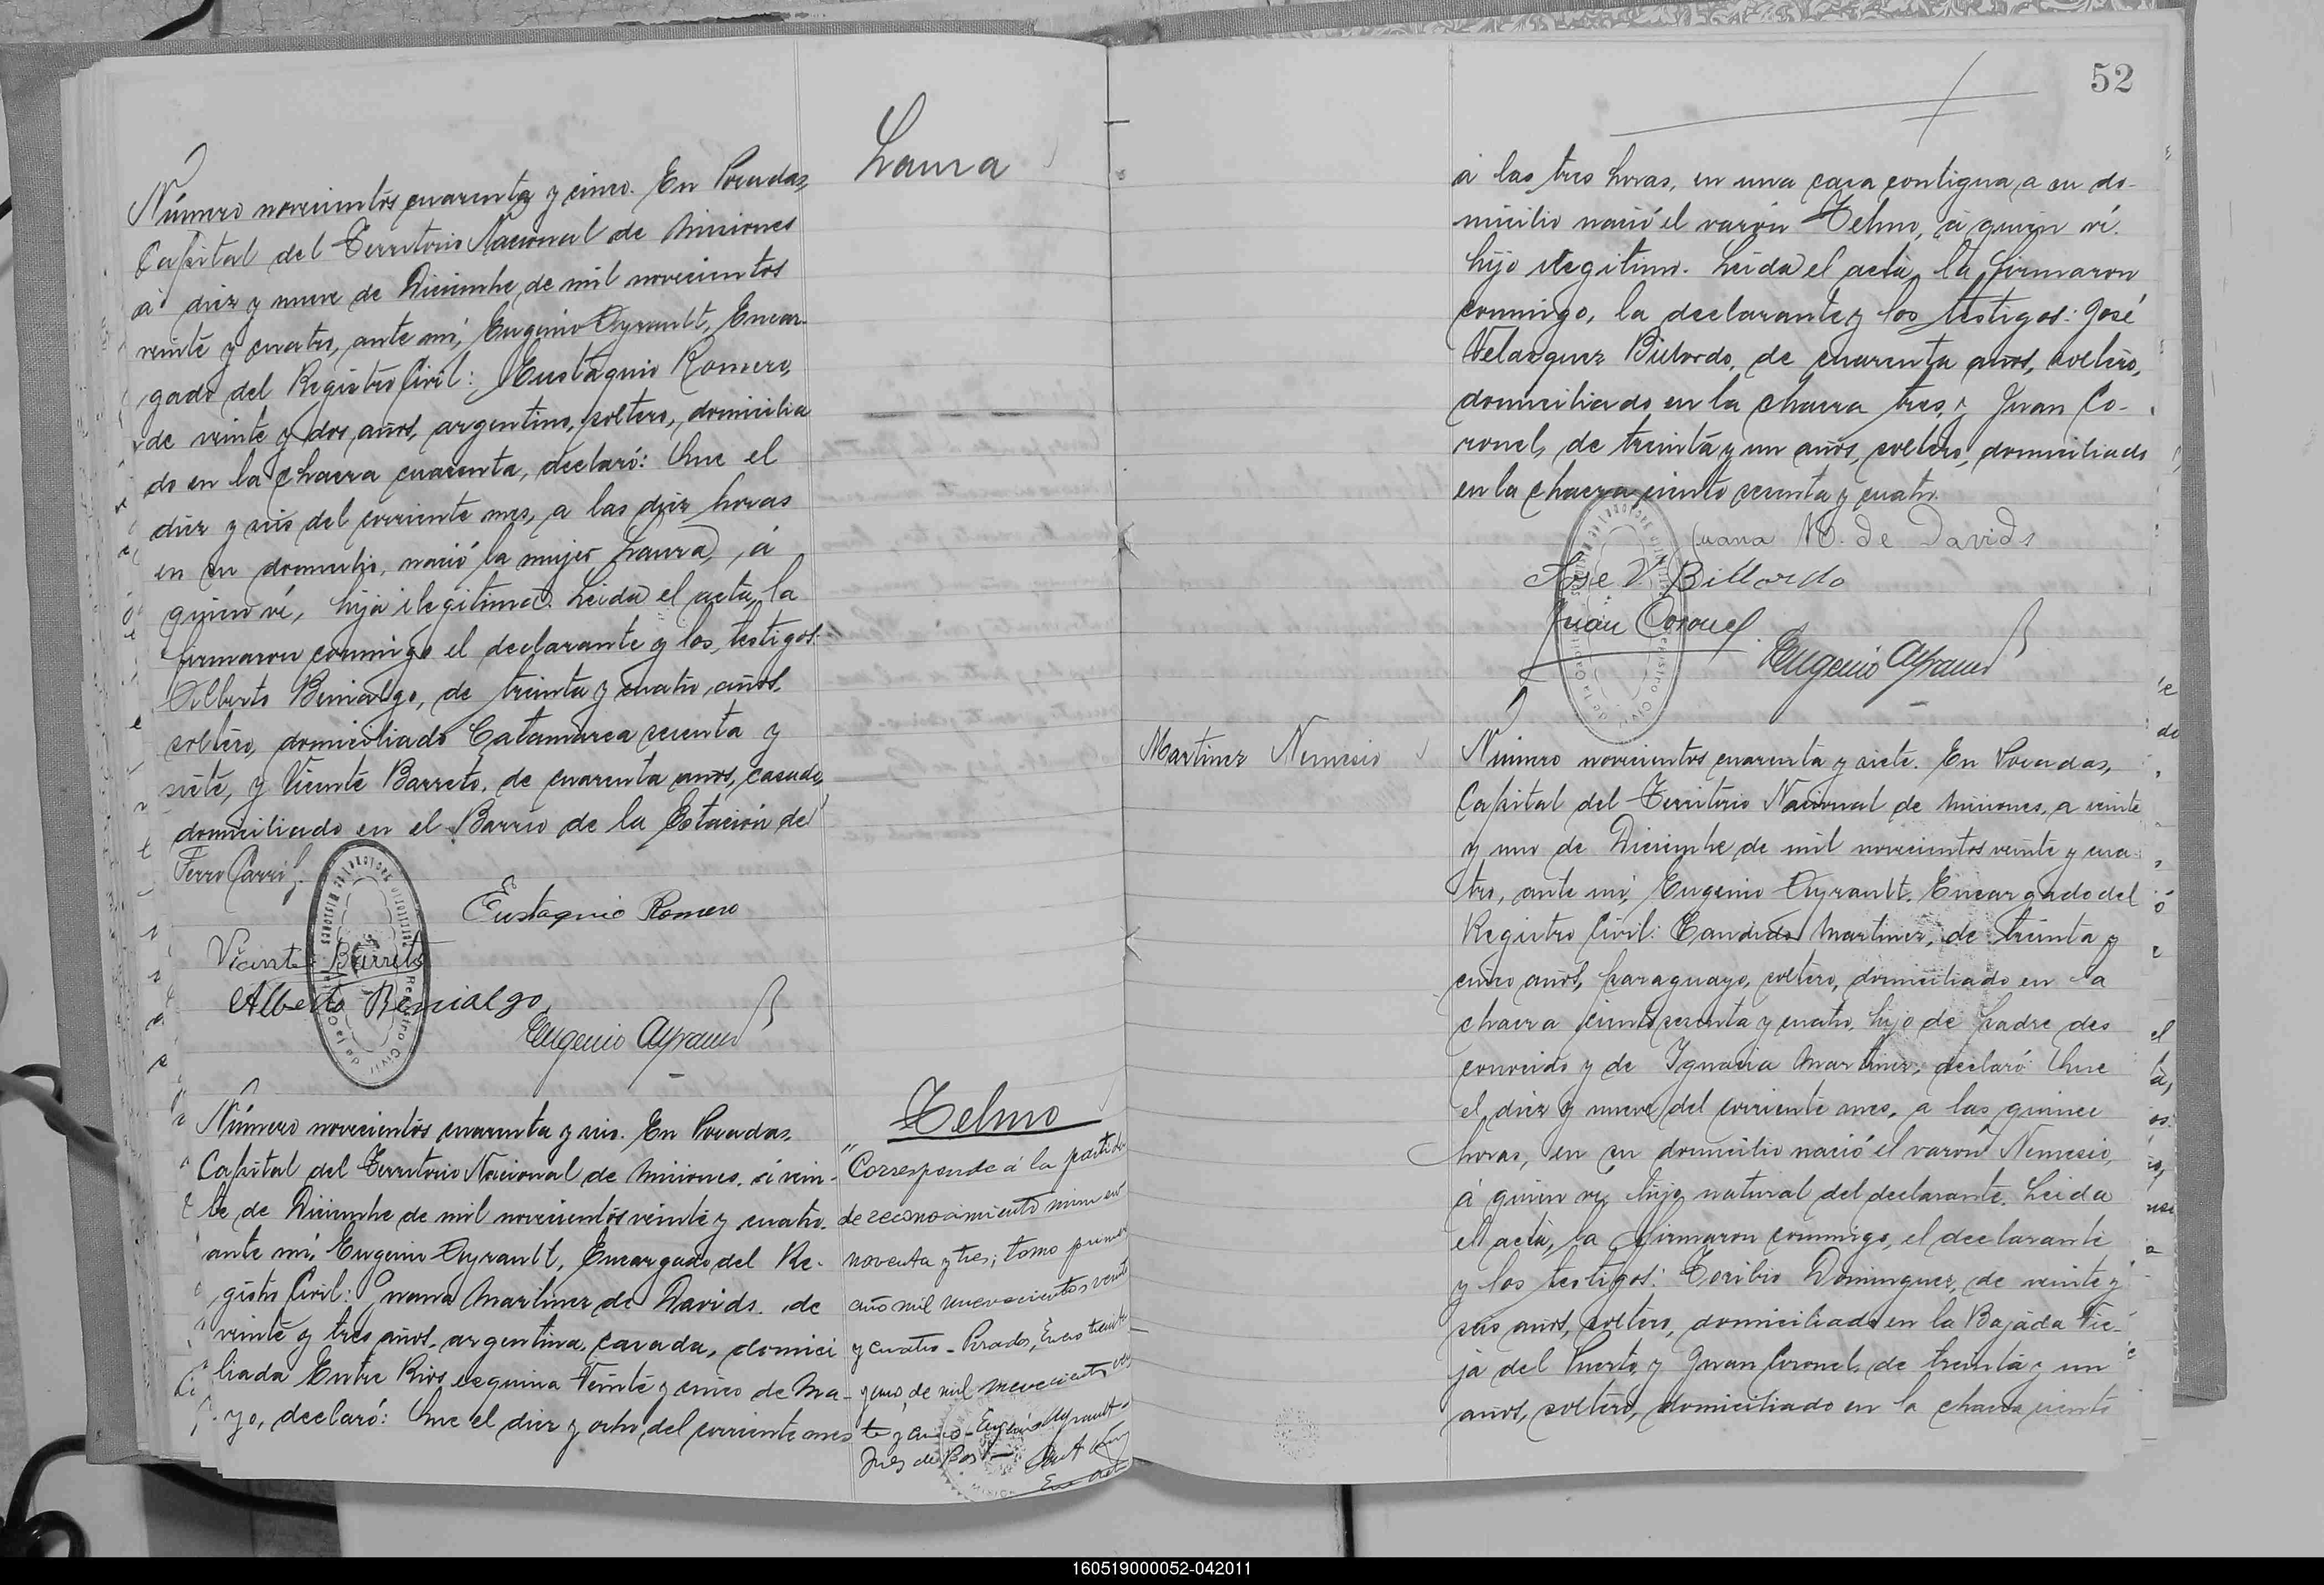 Laura
Número novecientos cuarenta y cinco. En Posadas,
Capital del Territorio Nacional de Misiones
á diez y nueve de Diciembre de mil novecientos
veinte y cuatro, ante mí, Eugenio Ayrault, Encar-
gado del Registro Civil: Eustaquio Romero,
de veinte y dos años, argentino, soltero, domicilia
do en la chacra cuarenta, declaró: Que el
diez y seis del corriente mes, a las diez horas
en su domicilio, nació la mujer Laura, á
quien ví, hija ilegitima. Leida el acta, la
firmaron conmigo el declarante y los testigos:
Alberto Benialgo, de treinta y cuatro años,
soltero, domiciliado Catamarca sesenta y
siete, y Vicente Barreto, de cuarenta años, casado,
domiciliado en el Barrio de la Estación de
Ferro Carril.
Eustaquio Romero
Vicente Barreto
Alberto Benialgo
Eugenio Ayrault
Telmo
Número novecientos cuarenta y seis. En Posadas,
Capital del Territorio Nacional de Misiones, á vein-
te de Diciembre de mil novecientos veinte y cuatro.
ante mí, Eugenio Ayrault, Encargado del Re-
gistro Civil: Juana Martinez de Davids, de
veinte y tres años, argentina, casada, domici
liada Entre Rios esquina Veinte y cinco de Ma-
yo, declaró: Que el diez y ocho del corriente mes
"Corresponde á la partida
de reconocimiento número
noventa y tres; tomo primero
año mil nuevecientos veinte
y cuatro - Posadas, Enero treinta
y uno, de mil nuevecientos vein
te y cinco - Eugenio Ayrault -
Juez de Paz -
52
á las tres horas, en una casa contigua a su do-
micilio nació el varón Telmo, á quien ví.
hijo ilegitimo. Leida el acta, la firmaron
conmigo, la declarante y los testigos: José
Velazquez Billordo, de cuarenta años, soltero,
domiciliado en la chacra tres, y Juan Co-
ronel, de treinta y un años, soltero, domiciliado
en la chacra ciento sesenta y cuatro.
Juana M. de Davids
Jose V. Billordo
Juan Coronel
Eugenio Ayrault
Martinez Nemesio
Número novecientos cuarenta y siete. En Posadas,
Capital del Territorio Nacional de Misiones, a veinte
y uno de Diciembre de mil novecientos veinte y cua-
tro, ante mí, Eugenio Ayrault, Encargado del
Registro Civil: Candido Martinez, de treinta y
cinco años, paraguayo, soltero, domiciliado en la
chacra ciento sesenta y cuatro, hijo de padre des
conocido y de Ignacia Martinez, declaró: Que
el diez y nueve del corriente mes, a las quince
horas, en su domicilio nació el varón Nemesio,
á quien ví, hijo natural del declarante. Leida
el acta, la firmaron conmigo, el declarante
y los testigos: Toribio Dominguez, de veinte y
seis años, soltero, domiciliado en la Bajada Vie-
ja del Puerto, y Juan Coronel, de treinta y un
años, soltero, domiciliado en la chacra ciento
160519000052-042011